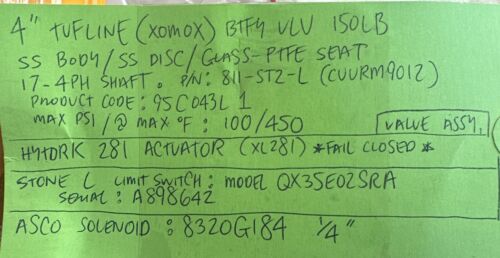 4" TUFLINE (XOMOX) BTFY VLV 150LB
SS BODY/SS DISC/GLASS-PTFE SEAT
17-4PH SHAFT. P/N: 811-ST2-L (CUURM9012)
PRODUCT CODE: 95C043L1
MAX PSI/@ MAX °F: 100/450
VALVE ASSY.
HYTORK 281 ACTUATOR (XL281) *FAIL CLOSED*
STONE L LIMIT SWITCH: MODEL QX35E02SRA
SERIAL: A898642
ASCO SOLENOID: 8320G184 1/4"